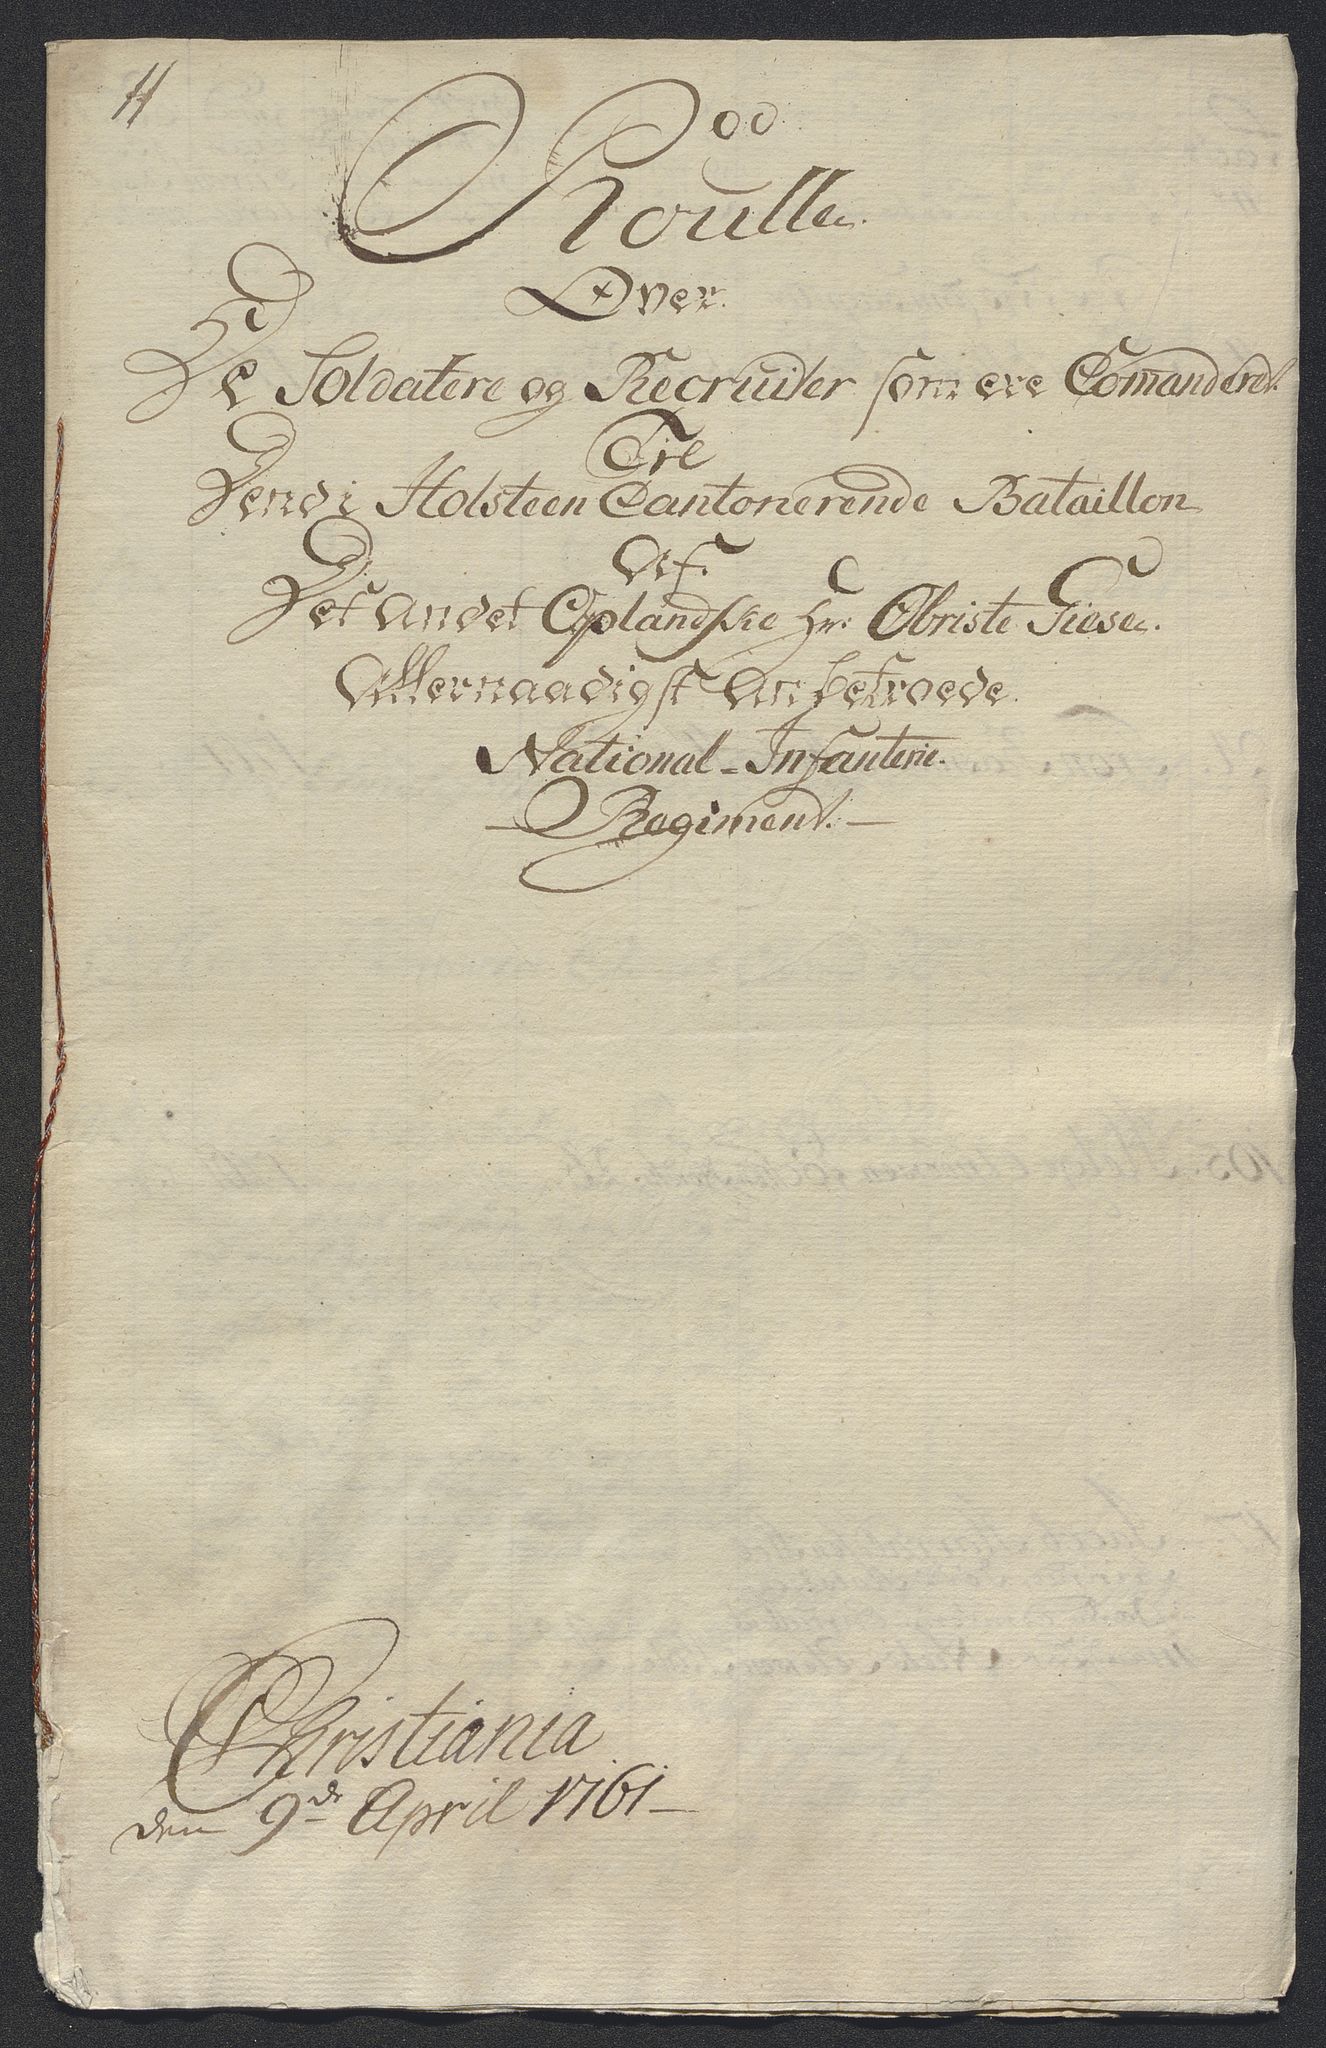 11
Roulle
Over
De Soldatere og Recruiter som ere Comanderet
Til
Dend i Holsteen Cantonerende Bataillon
Af
Det andet Oplandske Hr: Obriste Giese
Allernaadigst anbetroede
National-Infanterie
Regiment.
Christiania
den 9de April 1761